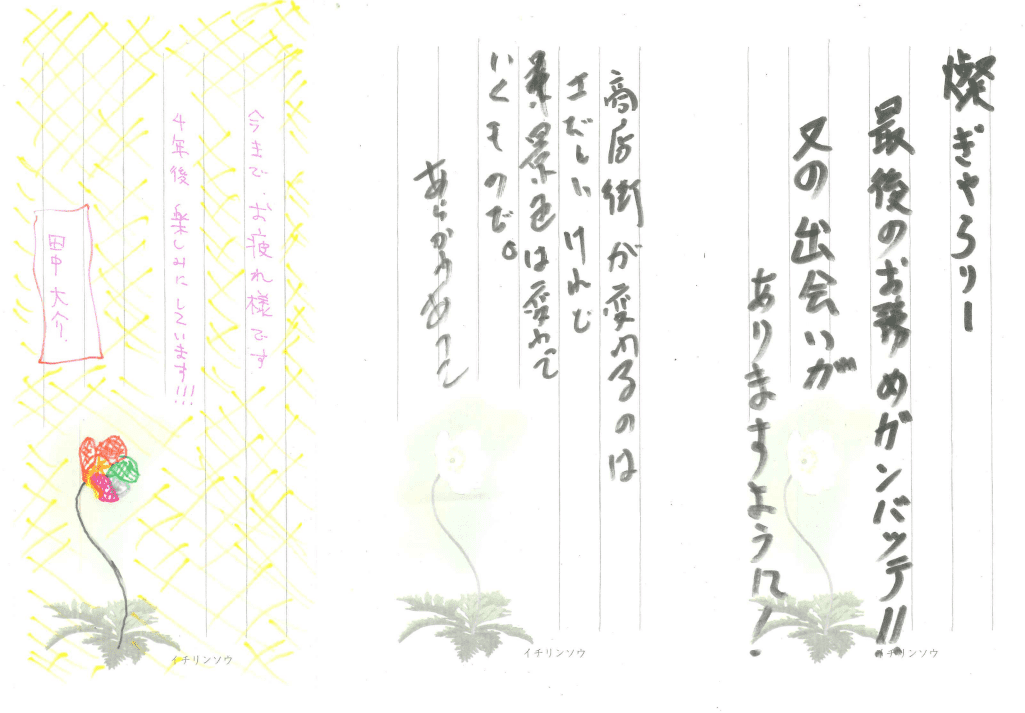 燦ぎゃらりー
最後のお務めガンバッテ!!
又の出会いが
ありますように!
イチリンソウ
商店街が変わるのは
さびしいけれど
景色は変わって
いくもので。
あらかわめて
イチリンソウ
今まで、お疲れ様です
4年後楽しみにしています!!!
田中大介.
イチリンソウ